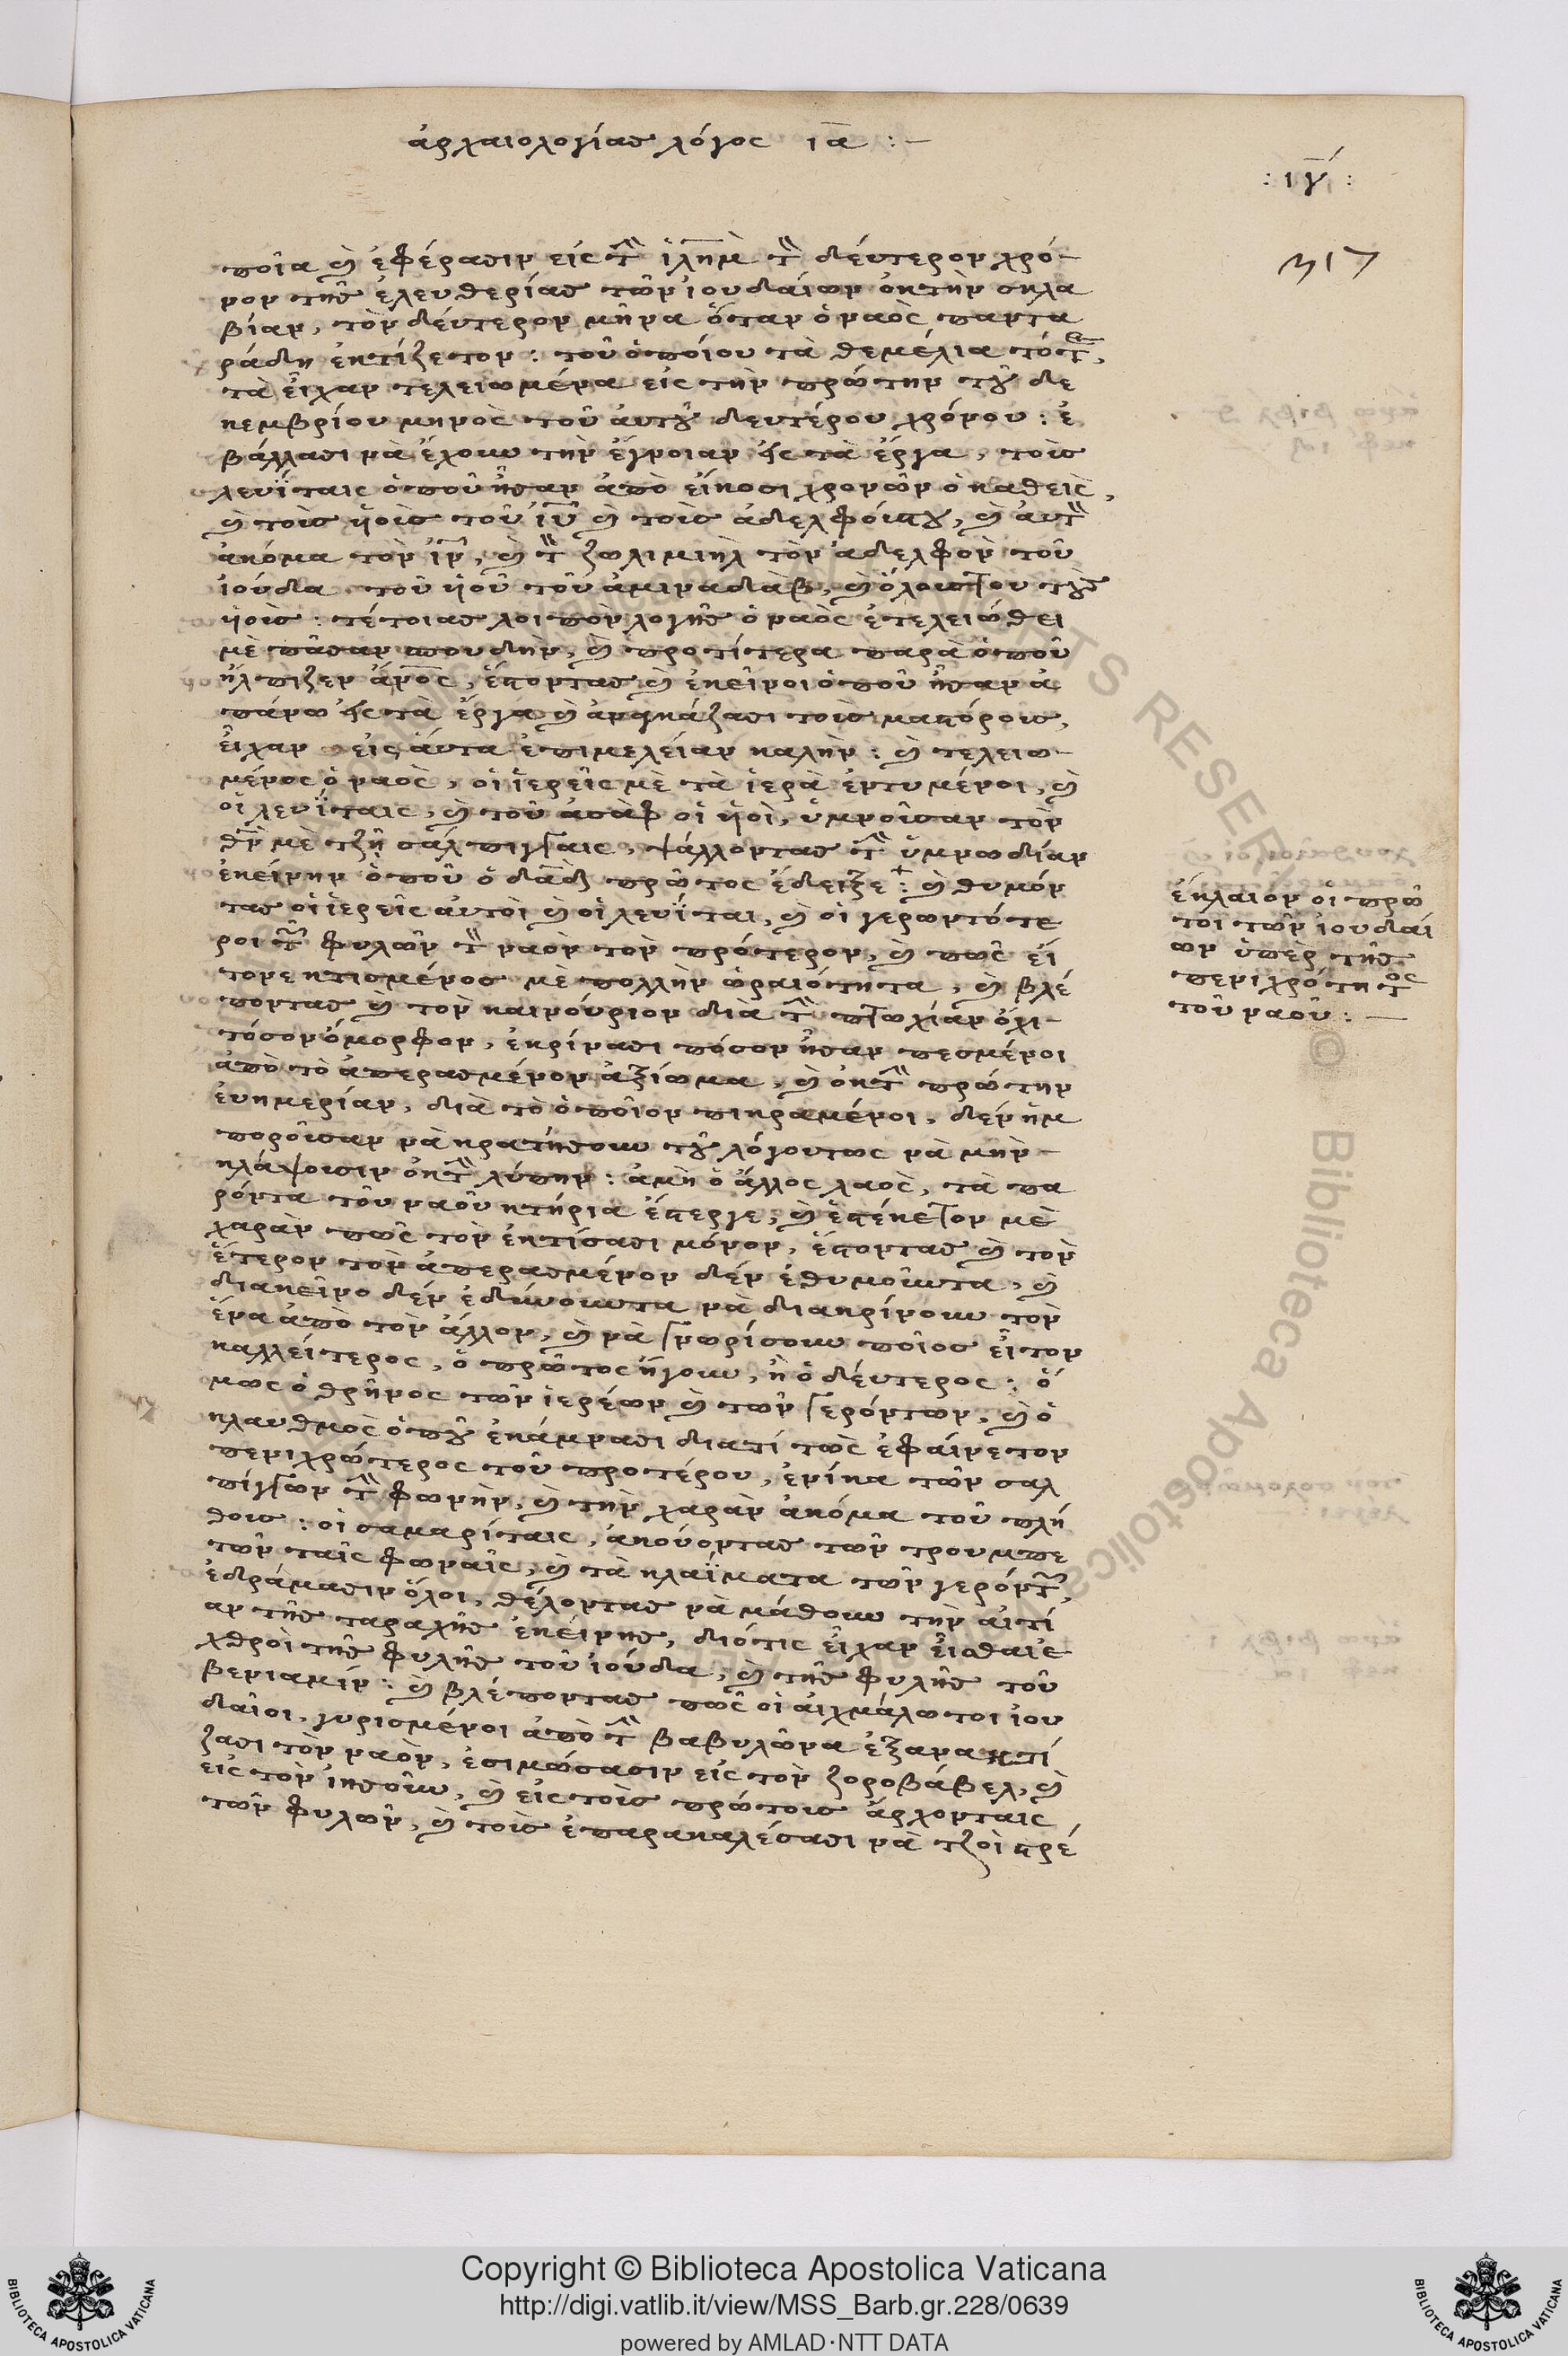 ἀρχαιολογίας λόγος ια :—
: ιγ :
317
ποῖα ϗ ἐφέρασιν εἰς τὴν ἱλημ τὸν δεύτερον χρό-
νον τῆς ἐλευθερίας τῶν ἰουδαίων ὀκ τὴν σκλα
βίαν, τὸν δεύτερον μῆνα ὅταν ὁ ναὸς παντα
ράδη ἐκτίζετον : τοῦ ὁποίου τὰ θεμέλια τότε,
τὰ εἶχαν τελειωμένα εἰς τὴν πρώτην τοῦ δε
κεμβρίου μηνὸς τοῦ αὐτοῦ δευτέρου χρόνου : ἐ
βάλλασι νὰ ἔχουν τὴν ἔγνοιαν εἰς τὰ ἔργα, τοὺς
λευΐταις ὁποῦ ἦσαν ἀπὸ εἴκοσι χρονῶν ὁ καθεὶς,
ϗ τοὺς ἡοὺς τοῦ ἰῦ ϗ τοὺς ἀδελφούς του, ϗ αὐτὸν
ἀκόμα τὸν ἰν, ϗ τὸν ζωλιμιηλ τὸν ἀδελφὸν τοῦ
ἰούδα τοῦ ἡοῦ τοῦ ἀμιναδὰβ, ϗ ὅλους του τοὺς
ἡοὺς : τέτοιας λοιπὸν λογῆς ὁ ναὸς ἐτελειώθει
μὲ πᾶσαν σπουδὴν, ϗ προτίτερα παρὰ ὁποῦ
ἤλπιζεν ἄνος, ἔστοντας ϗ ἐκεῖνοι ὁποῦ ἦσαν ἀ
πάνω εἰς τὰ ἔργα ϗ ἀναγκάζασι τοὺς μαστόρους,
εἶχαν εἰς αὐτὰ ἐπιμελείαν καλὴν : ϗ τελειω-
μένος ὁ ναὸς, οἱ ἱερεῖς μὲ τὰ ἱερὰ ἐντυμένοι, ϗ
οἱ λευΐταις, ϗ τοῦ ἀσὰφ οἱ ἡοὶ, ὑμνοῦσαν τὸν
θν μὲ τζῆ σάλπιγγαις, ψάλλοντας τὴν ὑμνωδίαν
ἐκείνην ὁποῦ ὁ δαδ πρῶτος ἔδειξε : ϗ θυμόν
τας οἱ ἱερεῖς αὐτοὶ ϗ οἱ λευΐται, ϗ οἱ γεροντότε
ροι τῶν φυλῶν τὸν ναὸν τὸν πρότερον, ϗ πῶς εἴ
τονε κτισμένος μὲ πολλὴν ὡραιότητα, ϗ βλέ
ποντας ϗ τὸν καινούριον διὰ τὴν πτωχίαν ὄχι-
τόσον ὄμορφον, ἐκρίνασι πόσον ἦσαν πεσμένοι
ἀπὸ τὸ ἀπερασμένον ἀξίωμα, ϗ ὀκ τὴν πρώτην
εὐημερίαν, διὰ τὸ ὁποῖον πικραμένοι, δὲν ἠμ
ποροῦσαν νὰ κρατήσουν τοῦ λόγουτως νὰ μὴν-
κλάψουσιν ὀκ τὴν λύπην : ἀμὴ ὁ ἄλλος λαὸς, τὰ πα
ρόντα τοῦ ναοῦ κτήρια ἔστεργε, ϗ ἐστέκετον μὲ
χαρὰν πῶς τὸν ἐκτίσασι μόνον, ἔστοντας ϗ τὸν
ἕτερον τὸν ἀπερασμένον δὲν ἐθυμοῦντα, ϗ
διακεῖνο δὲν ἐδύνουντα νὰ διακρίνουν τὸν
ἕνα ἀπὸ τὸν ἄλλον, ϗ νὰ γνωρίσουν ποῖος εἶτον
καλλείτερος, ὁ πρῶτος ἤγουν, ἢ ὁ δεύτερος : ὅ
μως ὁ θρῆνος τῶν ἱερέων ϗ τῶν γερόντων, ϗ ὁ
κλαυθμὸς ὁποῦ ἐκάμνασι διατί τως ἐφαίνετον
πενιχρώτερος τοῦ προτέρου, ἐνίκα τῶν σαλ
πίγγων τὴν φωνὴν, ϗ τὴν χαρὰν ἀκόμα τοῦ πλή
θους : οἱ σαμαρίταις, ἀκούοντας τῶν τρουμπε
τῶν ταῖς φωναῖς, ϗ τὰ κλαΐματα τῶν γερόντων
ἐδράμασιν ὅλοι, θέλοντας νὰ μάθουν τὴν αἰτί
αν τῆς ταραχῆς ἐκείνης, διότις εἶχαν εἶσθαι ἐ
χθροὶ τῆς φυλῆς τοῦ ἰούδα, ϗ τῆς φυλῆς τοῦ
βενιαμίν : ϗ βλέποντας πῶς οἱ αἰχμάλωτοι ἰου
δαῖοι, γυρισμένοι ἀπὸ τὴν βαβυλῶνα ἐξανακτί
ζασι τὸν ναὸν, ἐσιμώσασιν εἰς τὸν ζοροβάβελ, ϗ
εἰς τὸν ἰησοῦν, ϗ εἰς τοὺς πρώτους ἄρχονταις
τῶν φυλῶν, ϗ τοὺς ἐπαρακαλέσασι νὰ τζοὶ στρέ
ἔκλαιόν οἱ πρῶ
τοι τῶν ἰουδαί
ων ὑπὲρ τῆς
πενιχρότητος
τοῦ ναοῦ : —
Copyright © Biblioteca Apostolica Vaticana
http://digi.vatlib.it/view/MSS_Barb.gr.228/0639
powered by AMLAD·NTT DATA